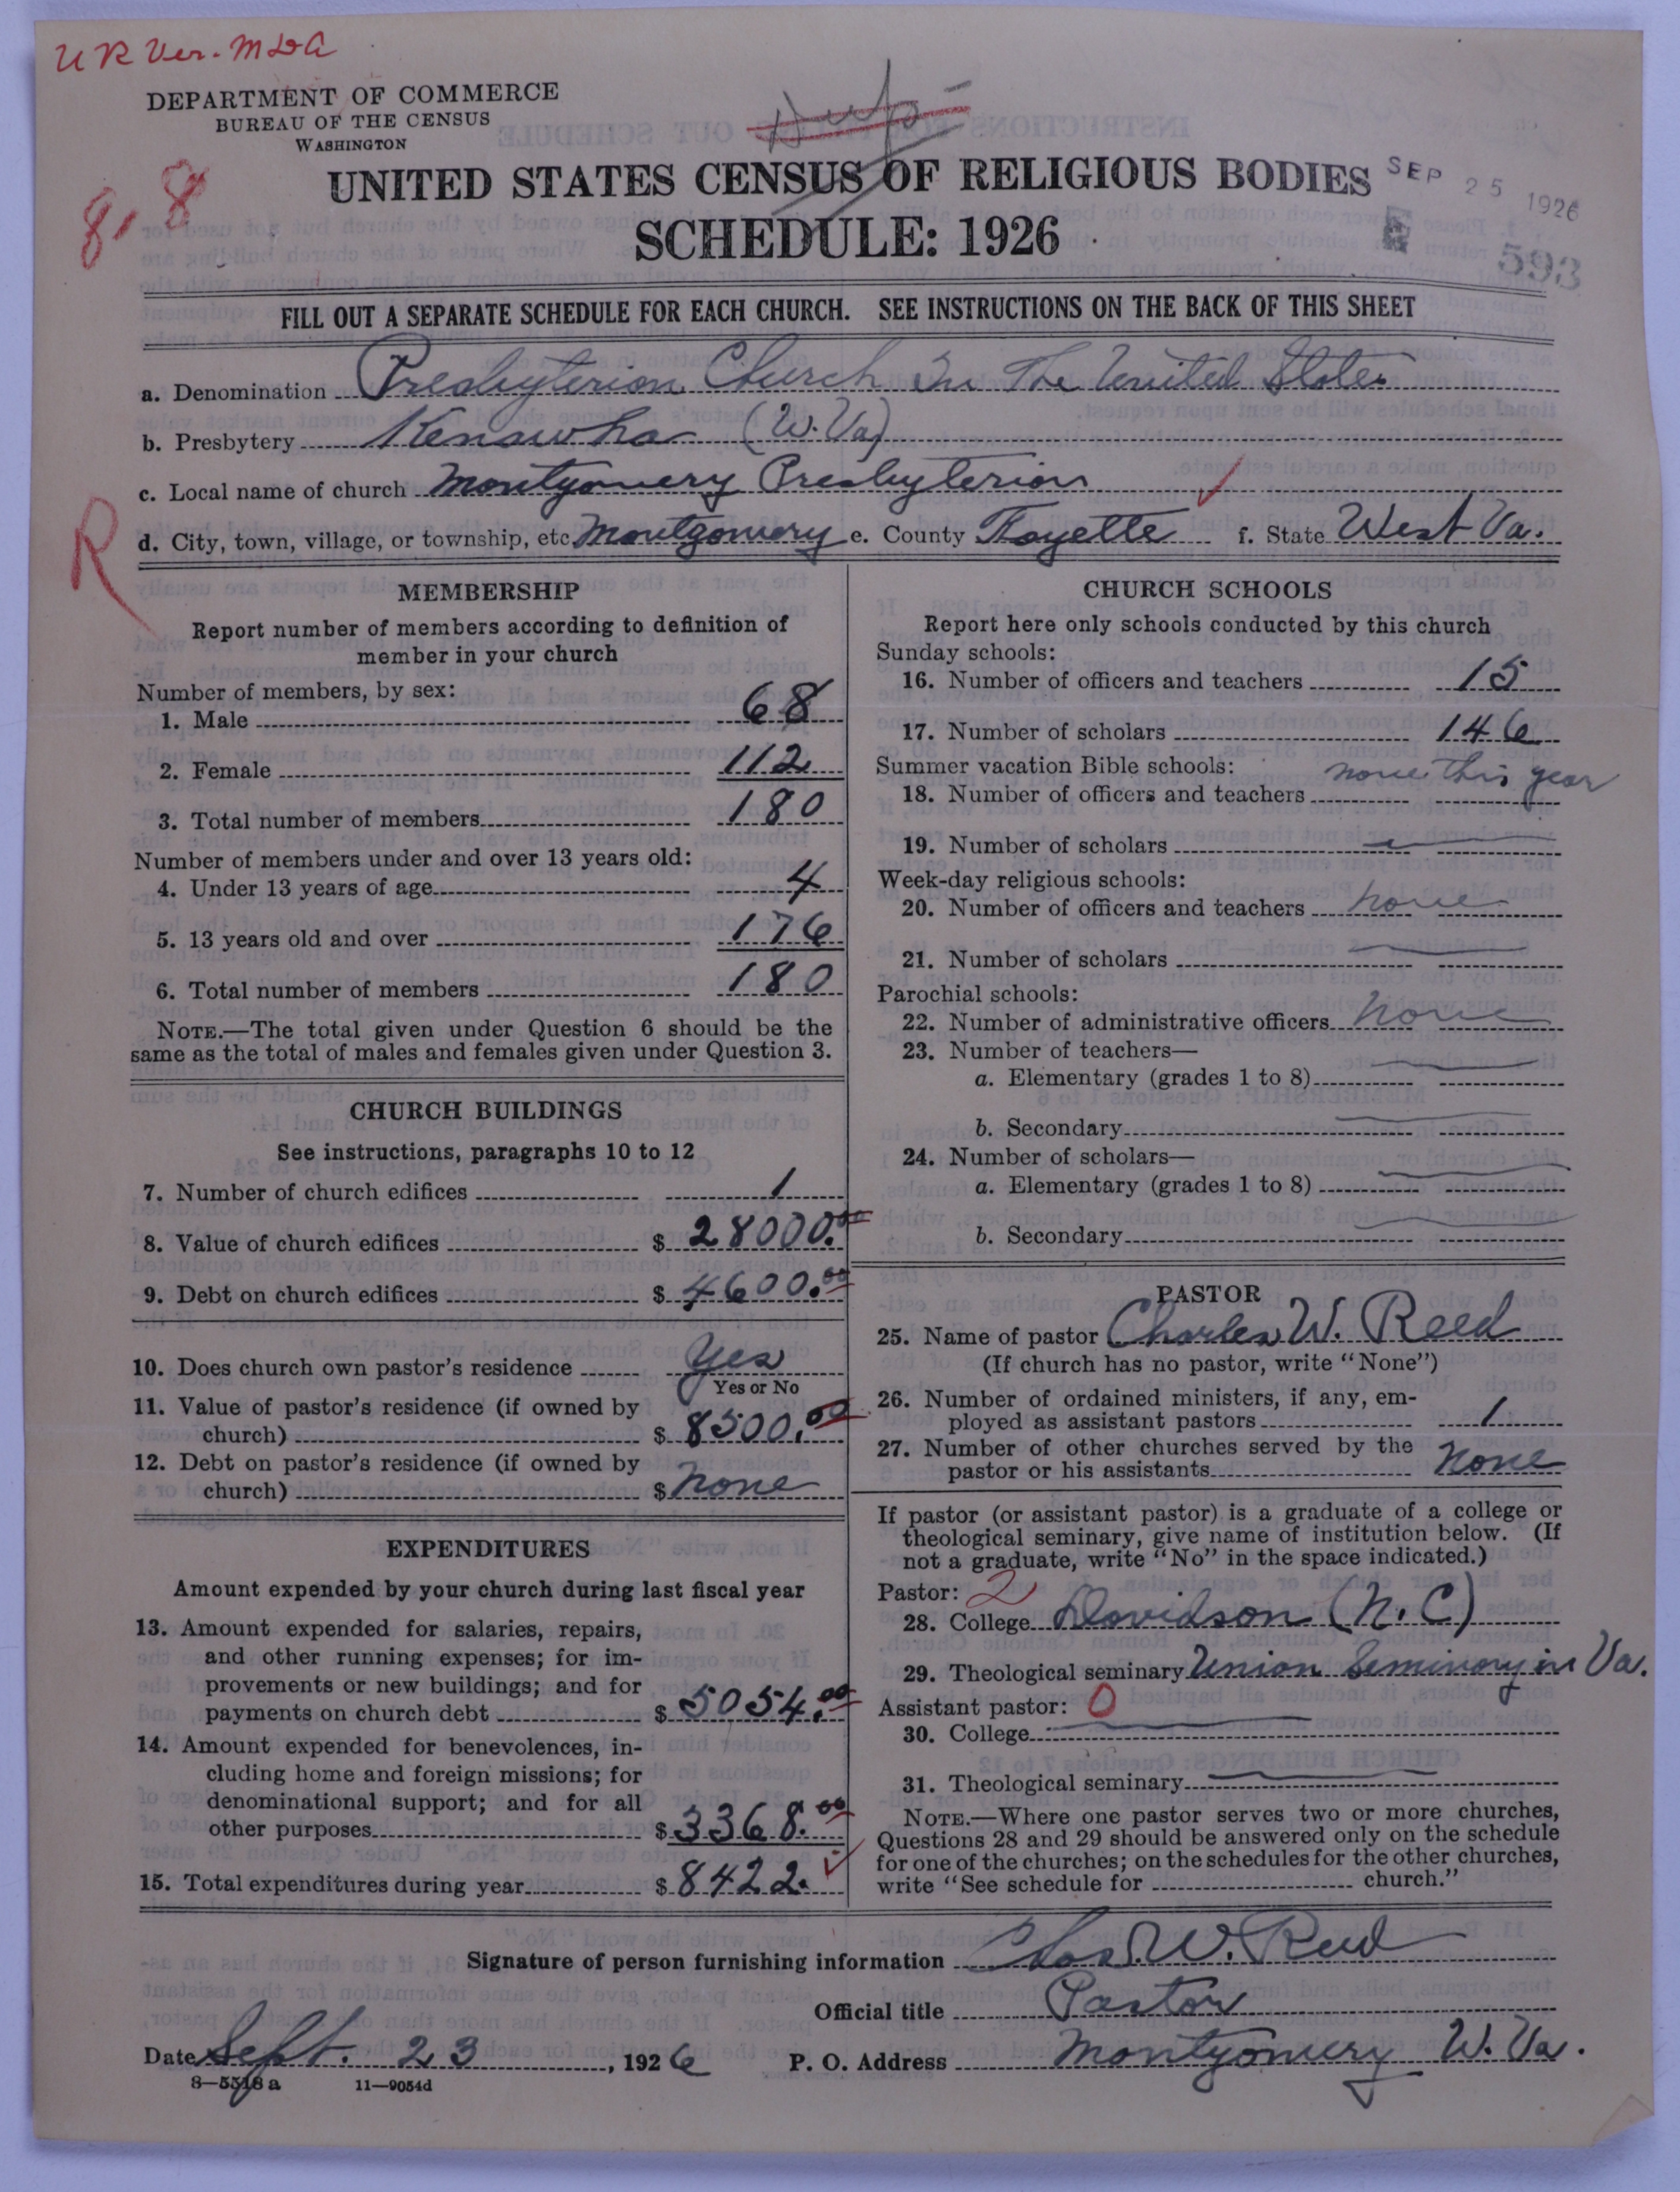 U R Ver. MDA
DEPARTMENT OF COMMERCE
BUREAU OF THE CENSUS
WASHINGTON
Dup
8-8
UNITED STATES CENSUS OF RELIGIOUS BODIES
SCHEDULE: 1926
SEP 25 1926
593
FILL OUT A SEPARATE SCHEDULE FOR EACH CHURCH. SEE INSTRUCTIONS ON THE BACK OF THIS SHEET
a. Denomination Presbyterian Church In The United States
b. Presbytery Kanawha (W. Va)
c. Local name of church Montgomery Presbyterian
R
d. City, town, village, or township, etc. Montgomery e. County Fayette f. State West Va.
MEMBERSHIP
Report number of members according to definition of
member in your church
Number of members, by sex:
1. Male 68
2. Female 112
3. Total number of members 180
Number of members under and over 13 years old:
4. Under 13 years of age 4
5. 13 years old and over 176
6. Total number of members 180
NOTE.—The total given under Question 6 should be the
same as the total of males and females given under Question 3.
CHURCH BUILDINGS
See instructions, paragraphs 10 to 12
7. Number of church edifices 1
8. Value of church edifices $ 28000.00
9. Debt on church edifices $ 4600.00
10. Does church own pastor's residence Yes
Yes or No
11. Value of pastor's residence (if owned by
church) $ 8500.00
12. Debt on pastor's residence (if owned by
church) $ None
EXPENDITURES
Amount expended by your church during last fiscal year
13. Amount expended for salaries, repairs,
and other running expenses; for im-
provements or new buildings; and for
payments on church debt $ 5054.00
14. Amount expended for benevolences, in-
cluding home and foreign missions; for
denominational support; and for all
other purposes $ 3368.00
15. Total expenditures during year $ 8422.
CHURCH SCHOOLS
Report here only schools conducted by this church
Sunday schools:
16. Number of officers and teachers 15
17. Number of scholars 146
Summer vacation Bible schools: none this year
18. Number of officers and teachers
19. Number of scholars
Week-day religious schools:
20. Number of officers and teachers none
21. Number of scholars
Parochial schools:
22. Number of administrative officers none
23. Number of teachers—
a. Elementary (grades 1 to 8)
b. Secondary
24. Number of scholars—
a. Elementary (grades 1 to 8)
b. Secondary
PASTOR
25. Name of pastor Charles W. Reed
(If church has no pastor, write "None")
26. Number of ordained ministers, if any, em-
ployed as assistant pastors 1
27. Number of other churches served by the
pastor or his assistants None
If pastor (or assistant pastor) is a graduate of a college or
theological seminary, give name of institution below. (If
not a graduate, write "No" in the space indicated.)
Pastor: 2
28. College Davidson (N. C)
29. Theological seminary Union Seminary in Va.
Assistant pastor: 0
30. College
31. Theological seminary
NOTE.—Where one pastor serves two or more churches,
Questions 28 and 29 should be answered only on the schedule
for one of the churches; on the schedules for the other churches,
write "See schedule for church."
Signature of person furnishing information Chas. W. Reed
Official title Pastor
Date Sept. 23, 1926 P. O. Address Montgomery W. Va.
8—5518 a 11—9054d